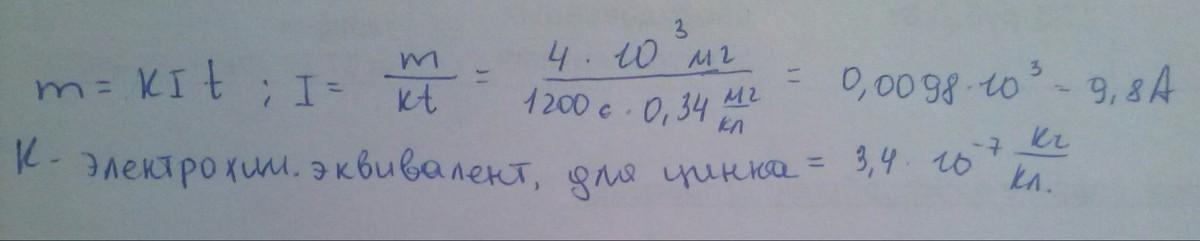 m = KIt ; I = m/kt = 4 · 10³ мг / 1200 с · 0,34 мг/кл = 0,0098 · 10³ - 9,8А
К - электрохим. эквивалент, для цинка = 3,4 · 10⁻⁷ кг/кл.